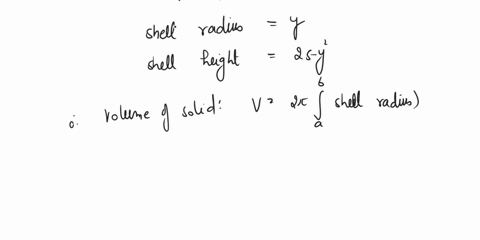 shell radius = y
shell height = 25-y²
∴ volume of solid: V = 2π ∫ₐᵇ shell radius)